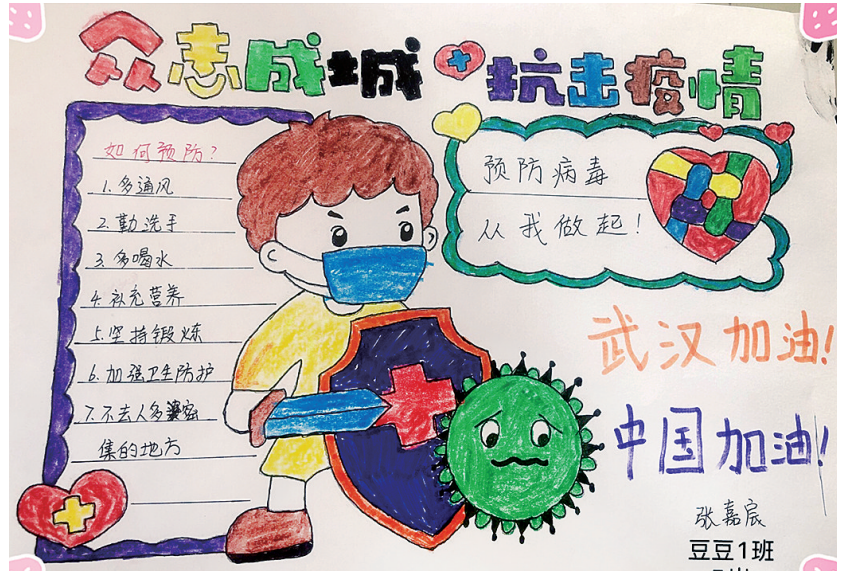 众志成城 抗击疫情
如何预防?
1.多通风
2.勤洗手
3.多喝水
4.补充营养
5.坚持锻炼
6.加强卫生防护
7.不去人多密
集的地方
预防病毒
从我做起!
武汉加油!
中国加油!
张嘉宸
豆豆1班